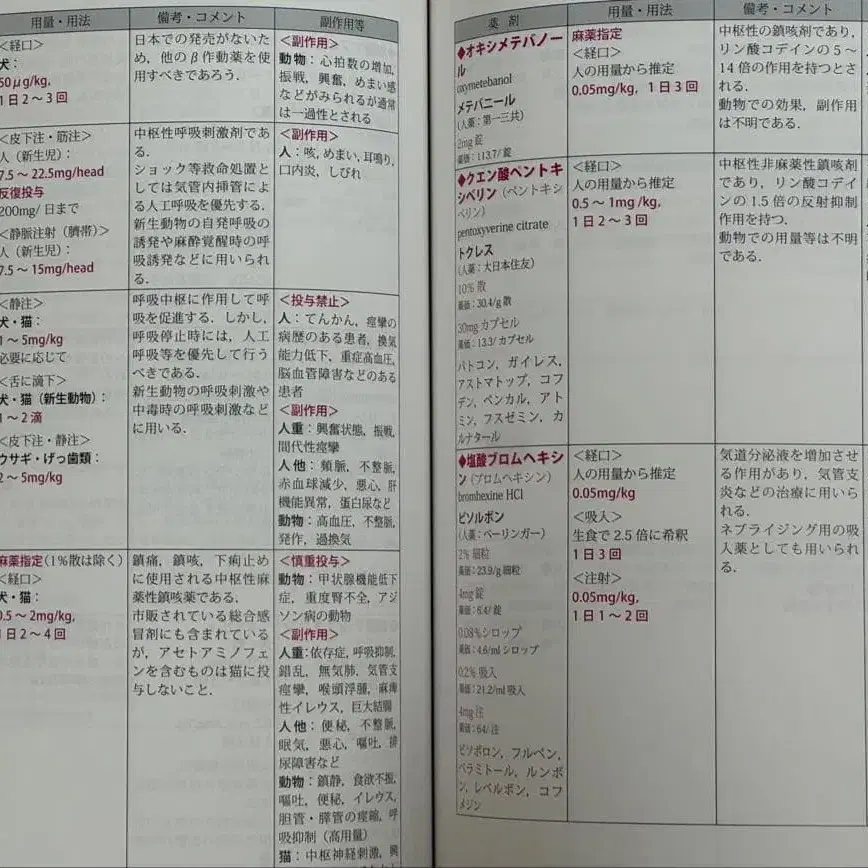 用量・用法
備考・コメント
副作用等
<経口>
犬：
50μg/kg,
1日2～3回
日本での発売がないた
め，他のβ作動薬を使
用すべきであろう．
<副作用>
動物：心拍数の増加，
振戦，興奮，めまい感
などがみられるが通常
は一過性とされる
<皮下注・筋注>
人（新生児）：
7.5～22.5mg/head
反復投与
200mg/日まで
<静脈注射（臍帯）>
人（新生児）：
7.5～15mg/head
中枢性呼吸刺激剤であ
る．
ショック等救命処置と
しては気管内挿管によ
る人工呼吸を優先する．
新生動物の自発呼吸の
誘発や麻酔覚醒時の呼
吸誘発などに用いられ
る．
<副作用>
人：咳，めまい，耳鳴り，
口内炎，しびれ
<静注>
犬・猫：
1～5mg/kg
必要に応じて
<舌に滴下>
犬・猫（新生動物）：
1～2滴
<皮下注・静注>
ウサギ・げっ歯類：
2～5mg/kg
呼吸中枢に作用して呼
吸を促進する．しかし，
呼吸停止時には，人工
呼吸等を優先して行う
べきである．
新生動物の呼吸刺激や
中毒時の呼吸刺激など
に用いる．
<投与禁止>
人：てんかん，痙攣の
病歴のある患者，換気
能力低下，重症高血圧，
脳血管障害などのある
患者
<副作用>
人重：興奮状態，振戦，
間代性痙攣
人他：頻脈，不整脈，
赤血球減少，悪心，肝
機能異常，蛋白尿など
動物：高血圧，不整脈，
発作，過換気
麻薬指定（1％散は除く）
<経口>
犬・猫：
0.5～2mg/kg,
1日2～4回
鎮痛，鎮咳，下痢止め
に使用される中枢性麻
薬性鎮咳薬である．
市販されている総合感
冒剤にも含まれている
が，アセトアミノフェ
ンを含むものは猫に投
与しないこと．
<慎重投与>
動物：甲状腺機能低下
症，重度腎不全，アジ
ソン病の動物
<副作用>
人重：依存症，呼吸抑制，
錯乱，無気肺，気管支
痙攣，喉頭浮腫，麻痺
性イレウス，巨大結腸
人他：便秘，不整脈，
眠気，悪心，嘔吐，排
尿障害など
動物：鎮静，食欲不振，
嘔吐，便秘，イレウス，
胆管・膵管の痙縮，呼
吸抑制（高用量）
猫：中枢神経刺激，興
薬 剤
用量・用法
備考・コメント
◆オキシメテバノー
ル
oxymetebanol
メテバニール
（人薬：第一三共）
2mg 錠
薬価：113.7/錠
麻薬指定
<経口>
人の用量から推定
0.05mg/kg，1日3回
中枢性の鎮咳剤であり，
リン酸コデインの5～
14倍の作用を持つとさ
れる．
動物での効果，副作用
は不明である．
◆クエン酸ペントキ
シベリン（ペントキシ
ベリン）
pentoxyverine citrate
トクレス
（人薬：大日本住友）
10% 散
薬価：30.4/g 散
30mg カプセル
薬価：13.3/カプセル
パトコン，ガイレス，
アストマトップ，コフ
デン，ペンカル，アト
ミン，フスゼミン，カ
ルナタール
<経口>
人の用量から推定
0.5～1mg/kg,
1日2～3回
中枢性非麻薬性鎮咳剤
であり，リン酸コデイ
ンの1.5倍の反射抑制
作用を持つ．
動物での用量等は不明
である．
◆塩酸ブロムヘキシ
ン（ブロムヘキシン）
bromhexine HCl
ビソルボン
（人薬：ベーリンガー）
2% 細粒
薬価：23.9/g 細粒
4mg 錠
薬価：6.4/錠
0.08%シロップ
薬価：4.6/ml シロップ
0.2% 吸入
薬価：21.2/ml 吸入
4mg 注
薬価：64/注
ビソポロン，フルペン，
ベラミトール，ルンボ
ン，レベルボン，コフ
メジン
<経口>
人の用量から推定
0.05mg/kg
<吸入>
生食で2.5倍に希釈
1日3回
<注射>
0.05mg/kg,
1日1～2回
気道分泌液を増加させ
る作用があり，気管支
炎などの治療に用いら
れる．
ネブライジング用の吸
入薬としても用いられ
る．